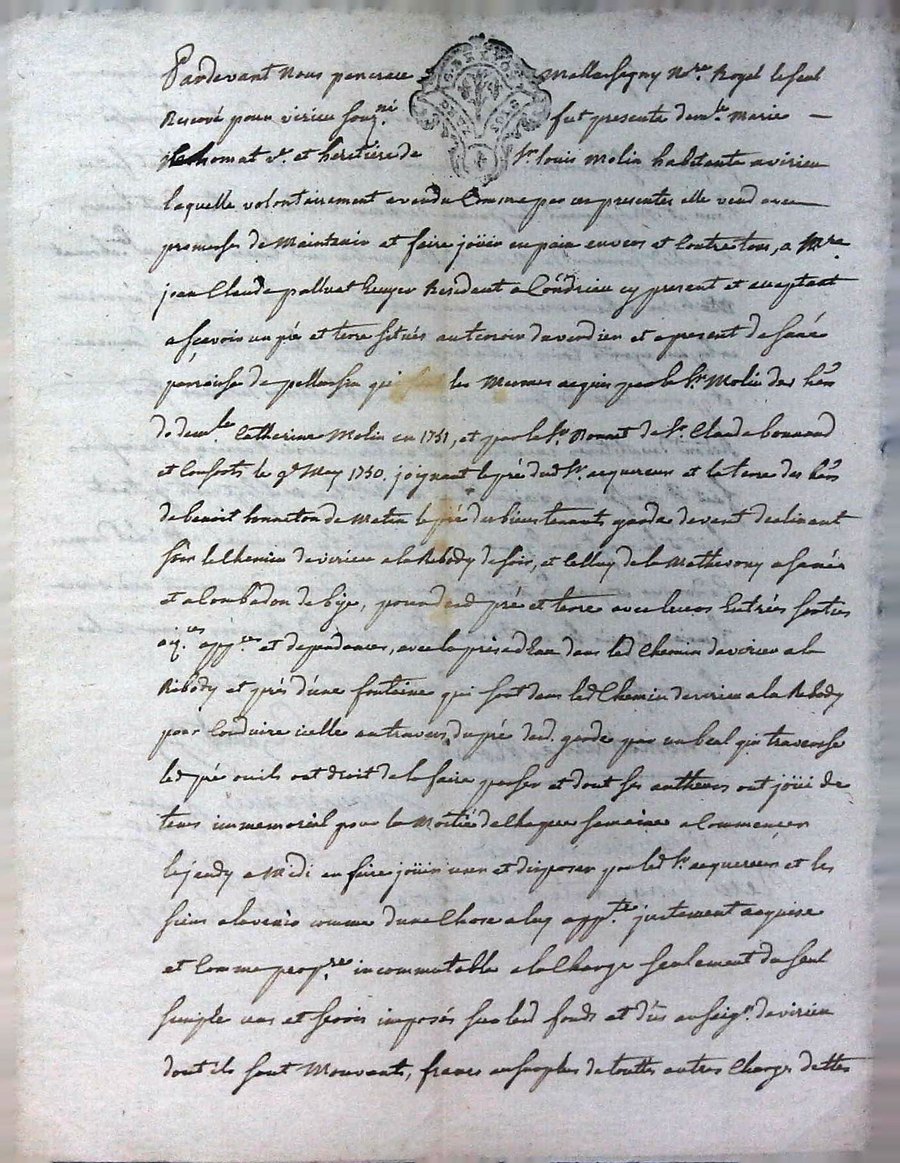 Pardevant Nous pancrace Mallassagny No.re Royal le seul
Reservé pour virieu souz.né fut presente dem.lle Marie
thomat v.e et heretiere de S.r louis Molin habitante a virieu
laquelle volontairement a vendu Comme par ces presentes elle vend avec
promesse de Maintenir et faire joüir en paix envers et Contre tous, a M.re
jean Claude palluat Ecuyer Resident a Condrieu cy present et acceptant
a scavoir un pré et terre situés au teroir du verdier et a present de
parroisse de pellussin qui les Memes acquis par le S.r Molin des hers
de dem.lle Catherine Molin en 1731, et par le S.r Bonnet de S.r Claude bonnard
et Consorts le 9.e May 1730. joignant le pré dud S.r acquereur et la terre des hers
de benoit de Matin le pré des bientenants garde de vent declinant
soir le Chemin de virieu a la Ribody de soir, et Celluy de la
et a de bize, pour dud pré et terre avec leurs Entrées sorties
app.ces et dependances, avec la prise d'Eau dans led Chemin de virieu a la
Ribody et près d'une fontaine qui sort dans led Chemin de virieu a la Ribody
pour Conduire icelle au travers du pré dud. garde par un béal qui traverse
led pré ou ils ont droit de la faire passer et dont ses autheurs ont joüi de
tems immemorial pour la Moitié de Chaque semaine a Commencer
le jeudy a Midi en faire joüir user et disposer par led S.r acquereur et les
siens a l'avenir comme d'une Chose a luy app.te justement acquise
et Comme prop.re incommutable a la Charge seulement du seul
simple cens et servis imposés sur led fonds et dûs au seig.r de virieu
dont ils sont Mouvants, francs au surplus de touttes autres Charges dettes